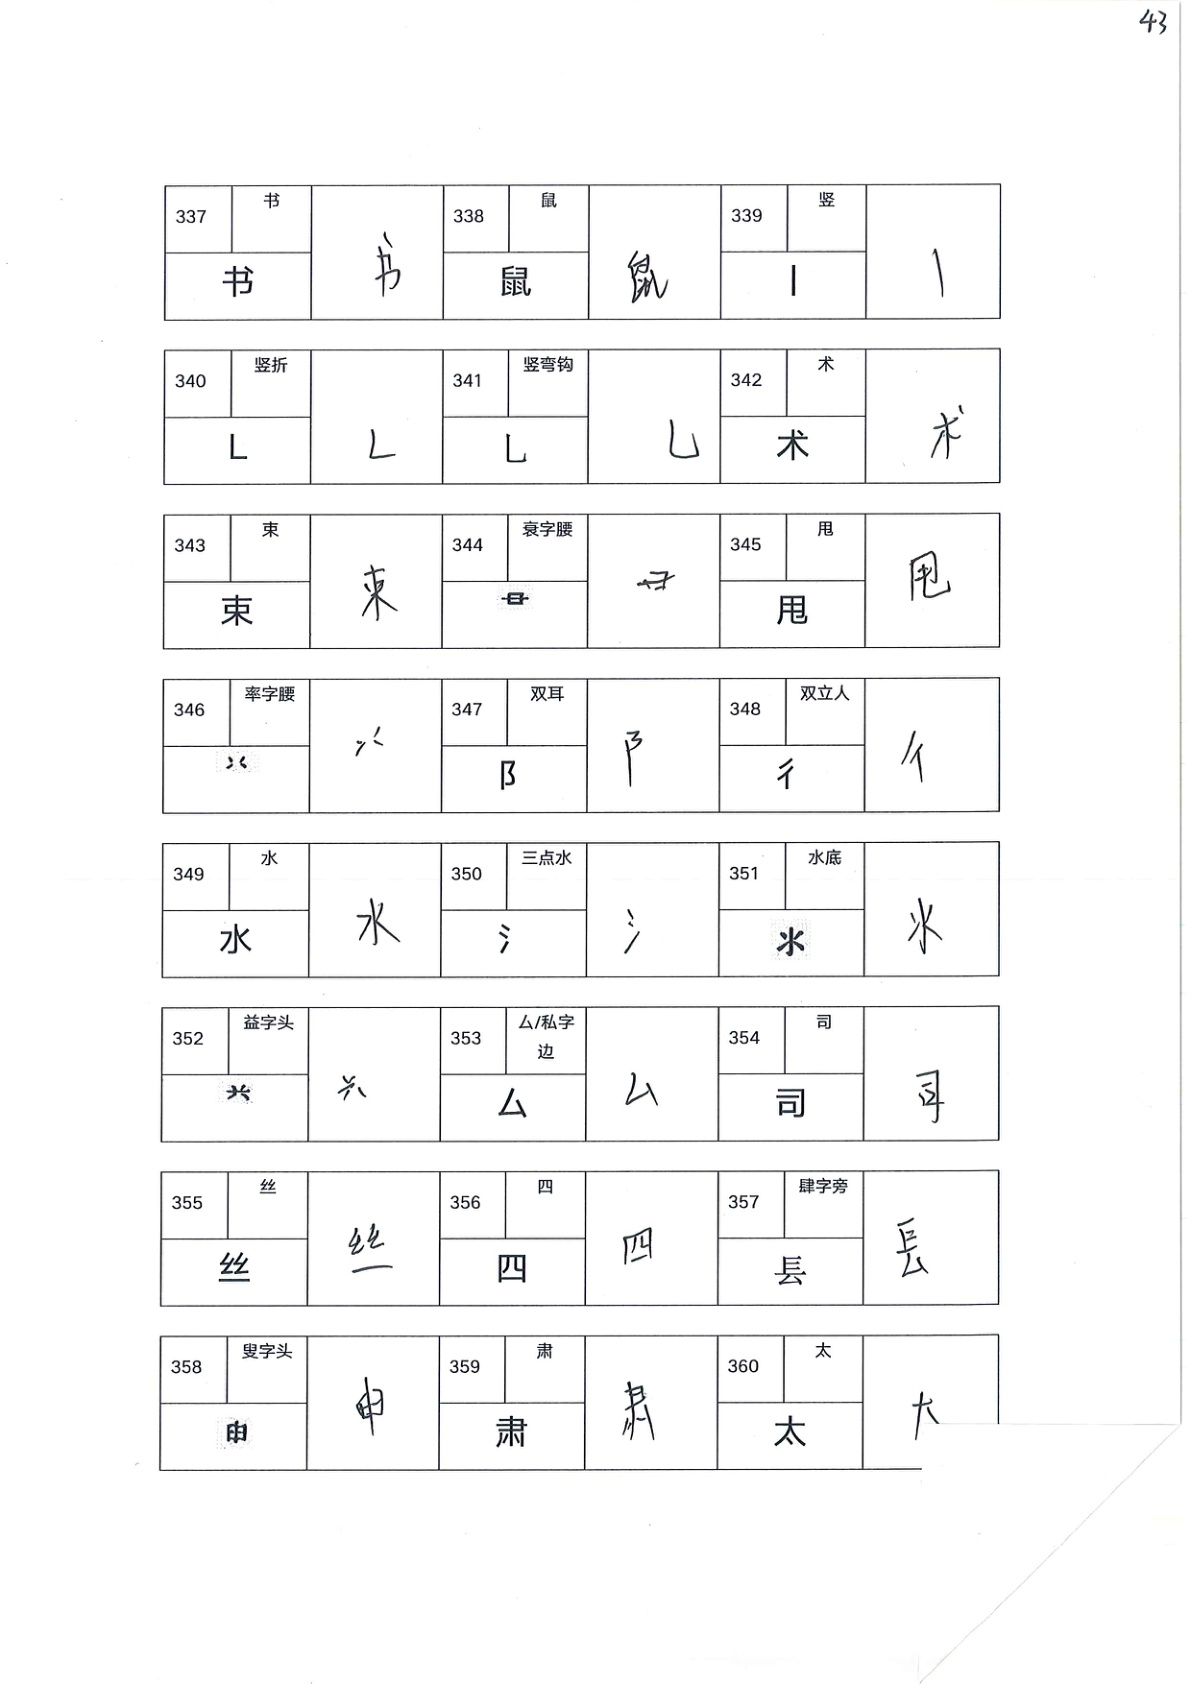 43
337 书 书 书 338 鼠 鼠 鼠 339 竖 丨 丨
340 竖折 𠃊 𠃊 341 竖弯钩 乚 乚 342 术 术 术
343 束 束 束 344 衰字腰 345 甩 甩 甩
346 率字腰 347 双耳 阝 阝 348 双立人 彳 彳
349 水 水 水 350 三点水 氵 氵 351 水底 氺 氺
352 益字头 353 厶/私字边 厶 厶 354 司 司 司
355 丝 丝 丝 356 四 四 四 357 肆字旁 镸 镸
358 叟字头 申 申 359 肃 肃 肃 360 太 太